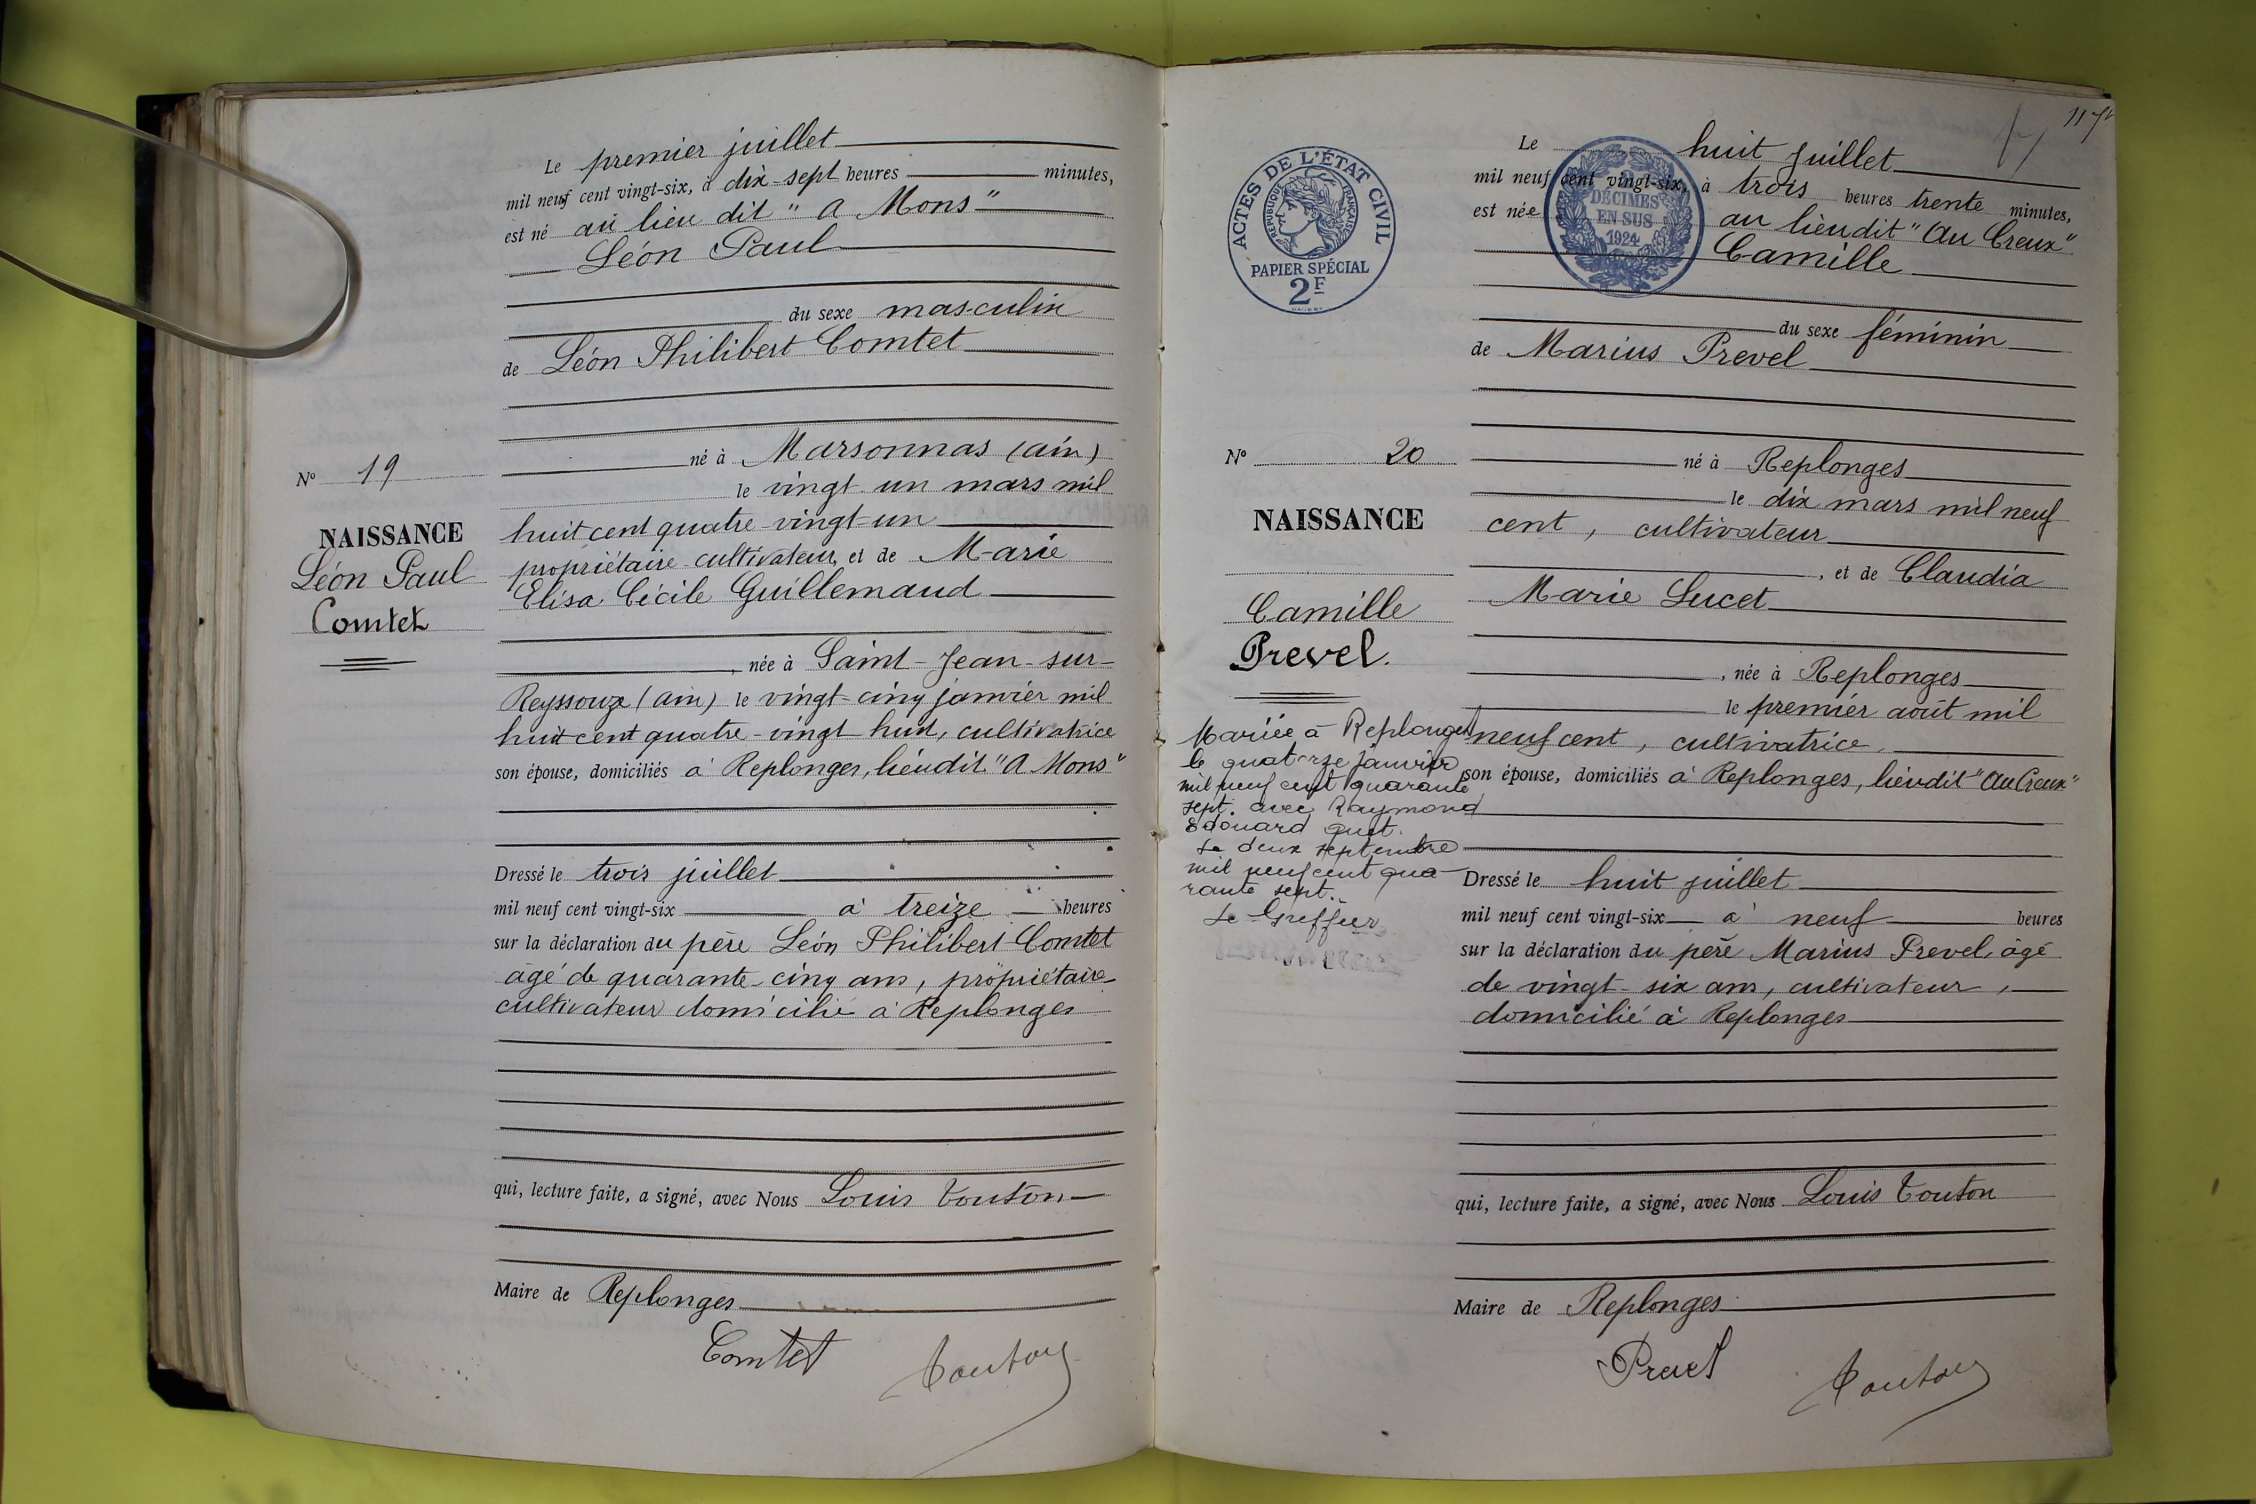 Le premier juillet
mil neuf cent vingt-six, à dix-sept heures minutes,
est né au lieu dit "a Mons"
Léon Paul
du sexe masculin
de Léon Philibert Comtet
né à Marsonnas (ain)
le vingt un mars mil
huit cent quatre-vingt-un
propriétaire cultivateur, et de Marie
Elisa Cécile Guillemaud
, née à Saint-Jean-sur-
Reyssouze (ain) le vingt-cinq janvier mil
huit cent quatre-vingt huit, cultivatrice
son épouse, domiciliés à Replonges, lieudit "a Mons"
Dressé le trois juillet
mil neuf cent vingt-six à treize heures
sur la déclaration du père Léon Philibert Comtet
âgé de quarante-cinq ans, propriétaire
cultivateur domicilié à Replonges
qui, lecture faite, a signé, avec Nous Louis Touton
Maire de Replonges
Comtet Touton
No 19
NAISSANCE
Léon Paul
Comtet
Le huit juillet
mil neuf cent vingt-six, à trois heures trente minutes,
est née au lieudit "au Creux"
Camille
du sexe féminin
de Marius Prevel
né à Replonges
le dix mars mil neuf
cent, cultivateur
, et de Claudia
Marie Lucet
, née à Replonges
le premier août mil
neuf cent, cultivatrice,
son épouse, domiciliés à Replonges, lieudit "au Creux"
Dressé le huit juillet
mil neuf cent vingt-six à neuf heures
sur la déclaration du père Marius Prevel, âgé
de vingt-six ans, cultivateur,
domicilié à Replonges
qui, lecture faite, a signé, avec Nous Louis Touton
Maire de Replonges
Prevel Touton
ACTES DE L'ÉTAT CIVIL
RÉPUBLIQUE FRANÇAISE
PAPIER SPÉCIAL
2F
DÉCIMES
EN SUS
1924
No 20
NAISSANCE
Camille
Prevel.
Mariée à Replonges
le quatorze janvier
mil neuf cent quarante
sept. avec Raymond
Edouard
Le deux septembre
mil neuf cent qua-
rante sept.
Le Greffier